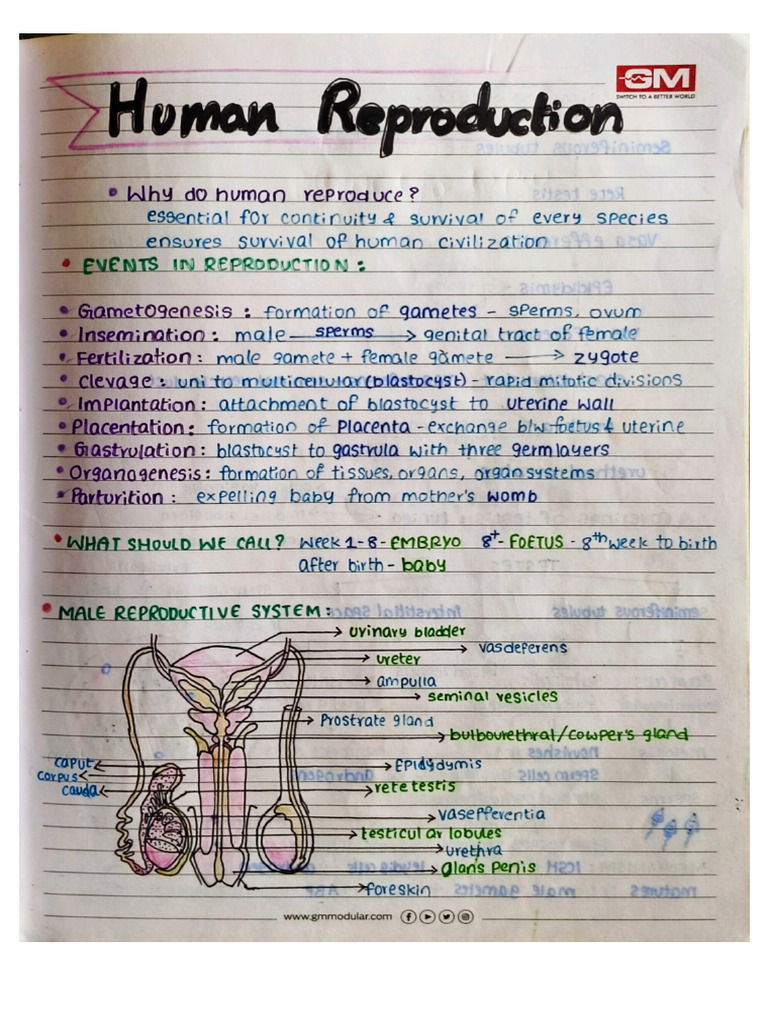 GM
SWITCH TO A BETTER WORLD
Human Reproduction
• Why do human reproduce?
essential for continuity & survival of every species
ensures survival of human civilization
• EVENTS IN REPRODUCTION:
• Gametogenesis : formation of gametes - sperms, ovum
• Insemination : male sperms → genital tract of female
• Fertilization : male gamete + female gamete → zygote
• Clevage : uni to multicellular (blastocyst) - rapid mitotic divisions
• Implantation : attachment of blastocyst to uterine wall
• Placentation : formation of Placenta - exchange b/w foetus & uterine
• Gastrulation : blastocyst to gastrula with three germlayers
• Organogenesis : formation of tissues, organs, organ systems
• Parturition : expelling baby from mother's womb
• WHAT SHOULD WE CALL? Week 1-8 - EMBRYO 8+ - FOETUS - 8th week to birth
after birth - baby
• MALE REPRODUCTIVE SYSTEM:
urinary bladder
vasdeferens
ureter
ampulla
seminal vesicles
Prostrate gland
bulbourethral/cowper's gland
caput
Epidydymis
corpus
cauda
rete testis
vasefferentia
testicular lobules
urethra
glans penis
foreskin
www.gmmodular.com